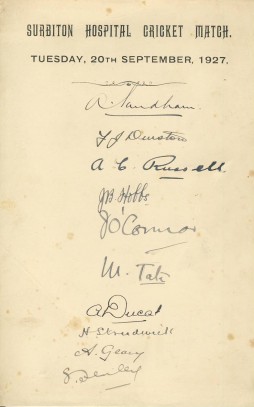 SURBITON HOSPITAL CRICKET MATCH.
TUESDAY, 20TH SEPTEMBER, 1927.
A. Sandham.
A C Russell.
JB Hobbs
J O'Connor
M. Tate
A Ducat
H Strudwick
G. Geary